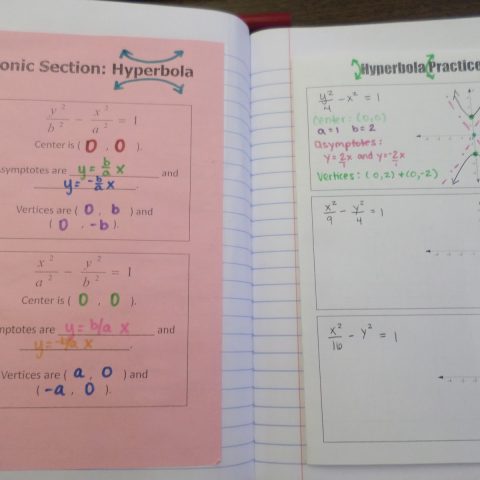 onic Section: Hyperbola
y² / b² - x² / a² = 1
Center is ( 0 , 0 ).
symptotes are y = b/a x and
y = -b/a x .
Vertices are ( 0 , b ) and
( 0 , -b ).
x² / a² - y² / b² = 1
Center is ( 0 , 0 ).
mptotes are y = b/a x and
y = -b/a x .
Vertices are ( a , 0 ) and
( -a , 0 ).
Hyperbola Practice
y²/4 - x² = 1
Center: (0,0)
a = 1 b = 2
asymptotes:
y = 2/1 x and y = -2/1 x
Vertices: (0,2) + (0,-2)
x²/9 - y²/4 = 1
x²/16 - y² = 1